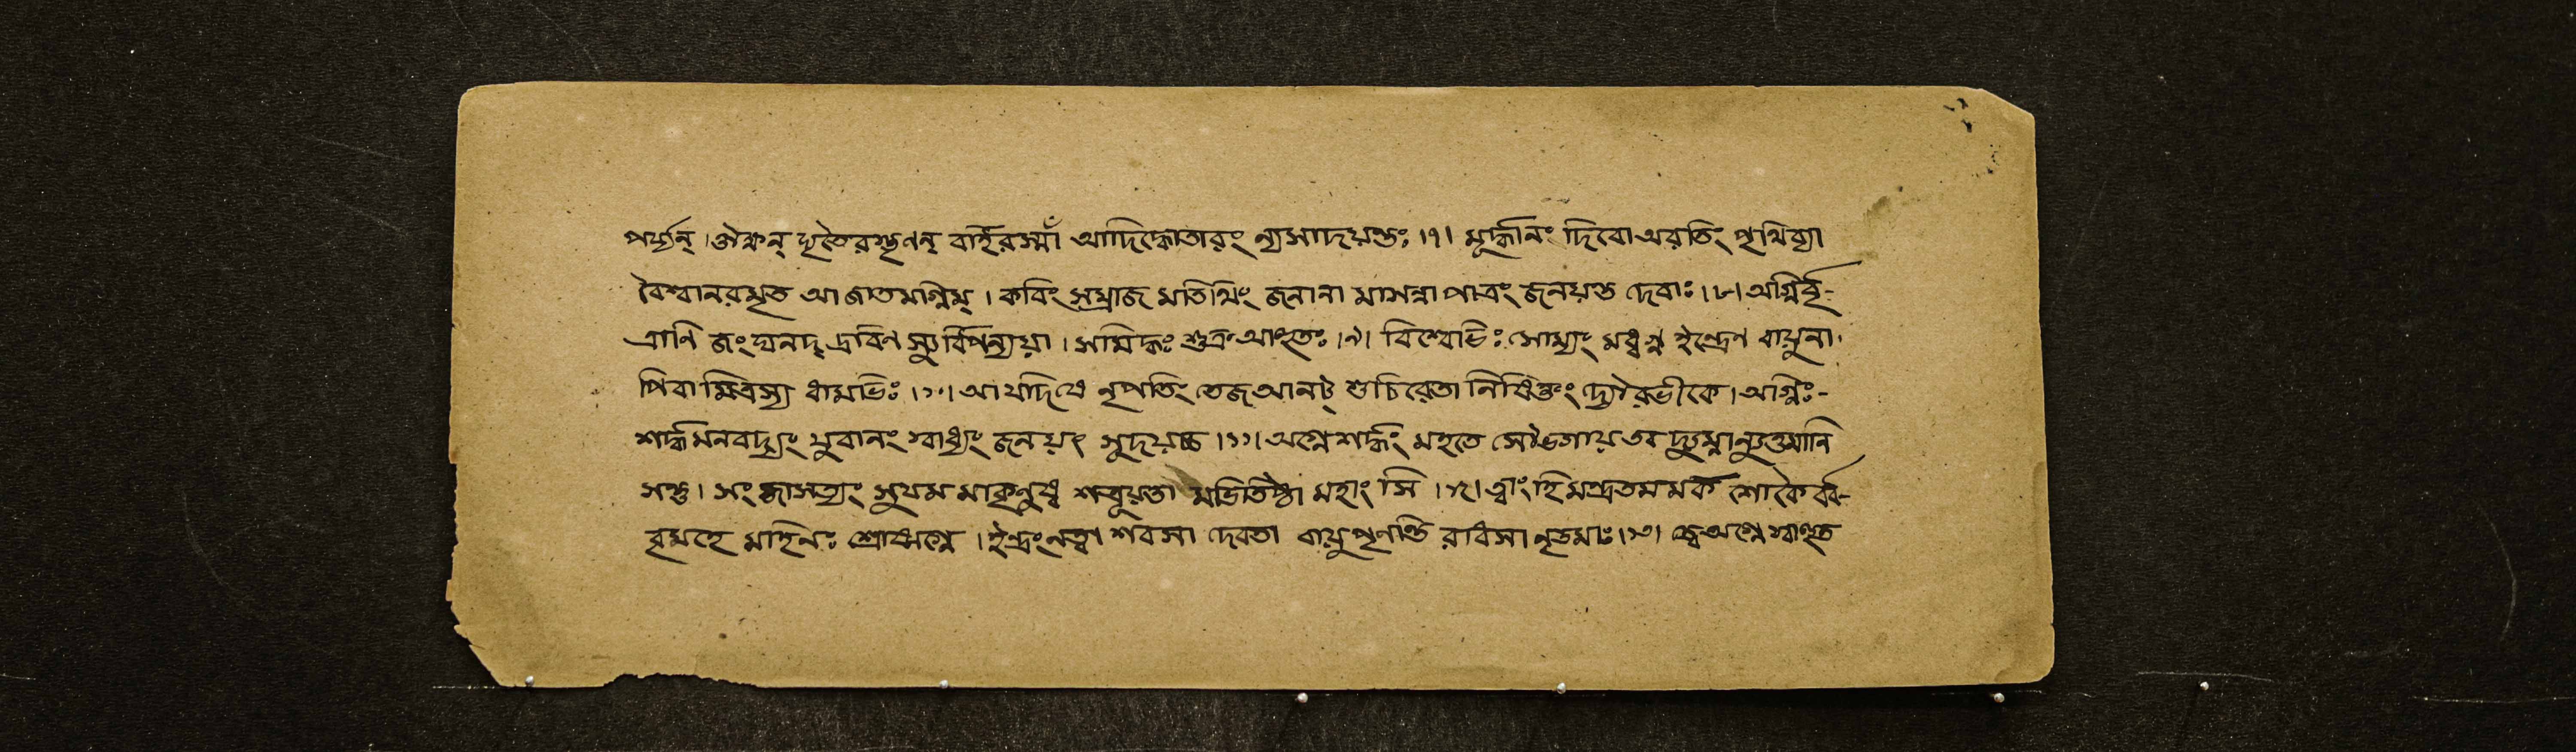 পর্য্যন্ । ঔক্ষন্ ঘৃতৈরস্তৃণন্ বর্হিরস্মাঁ আদিদ্ধোতারং ন্যসাদয়ন্তঃ ।৭। মূর্দ্ধানং দিবো অরতিং পৃথিব্যা
বৈশ্বানরমৃত আজাতমগ্নিম্ । কবিং সম্রাজ মতিথিং জনানা মাসন্না পাত্রং জনয়ন্ত দেবাঃ ।৮। অগ্নির্বৃ-
ত্রাণি জংঘনদ্ দ্রবিণস্যুর্বিপন্যয়া । সমিদ্ধঃ শুক্র আহুতঃ ।৯। বিশ্বেভিঃ সোম্যং মধ্বগ্ন ইন্দ্রেণ বায়ুনা ।
পিবা মিত্রস্য ধামভিঃ ।১০। আ যদিষে নৃপতিং তেজ আনট্ শুচিরেতা নিষিক্তং দ্যৌরভীকে । অগ্নিঃ-
শর্দ্ধমনবদ্যং যুবানং স্বাধ্যং জনয়ৎ সুদয়চ্চ ।১১। অগ্নে শর্দ্ধং মহতে সৌভগায় তব দ্যুম্নান্যুত্তমানি
সন্তু । সংজাস্পত্যং সুযম মাকৃণুষ্ব শত্রূয়তা মভিতিষ্ঠা মহাংসি ।১২। ত্বাংহি মন্দ্রতমমর্ক শোকৈর্বব-
বৃমহে মহিনঃ শ্রোষ্যগ্নে । ইন্দ্রংনত্বা শবসা দেবতা বায়ুপৃণন্তি রাধসা নৃতমাঃ ।১৩। ত্বেঅগ্নে স্বাহুত